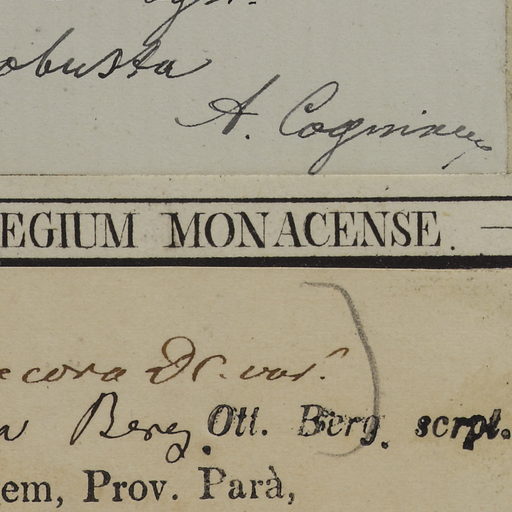 obusta
A. Cogniaux
EGIUM MONACENSE.
ecora DC. var.
Berg. Ott. Berg. scrpt.
em, Prov. Parà,